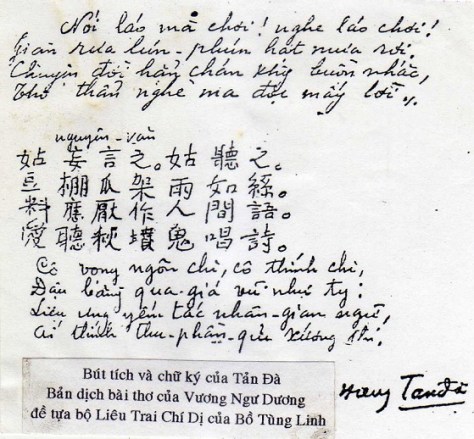 Nói láo mà chơi! nghe láo chơi!
Giàn dưa lún-phún hạt mưa rơi.
Chuyện đời hẳn chán khg buồn nhắc,
Thơ thẩn nghe ma đọc mấy lời.
nguyên-văn
姑妄言之。姑聽之。
豆棚瓜架雨如絲。
料應厭作人間語。
愛聽秋墳鬼唱詩。
Cô vọng ngôn chi, cô thính chi,
Đậu bằng qua-giá vũ như ty:
Liệu ưng yếm tác nhân-gian ngữ,
Ái thính thu-phần-quỷ xướng thi.
Bút tích và chữ ký của Tản Đà
Bản dịch bài thơ của Vương Ngư Dương
đề tựa bộ Liêu Trai Chí Dị của Bồ Tùng Linh
Tản đà